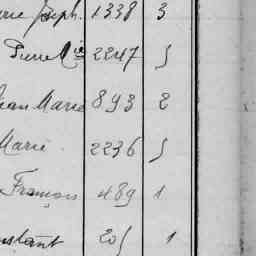 rre Joseph. 1338 3
Pierre Mie 2247 5
Jean Marie 893 2
Marie 2236 5
François 489 1
nstant 205 1